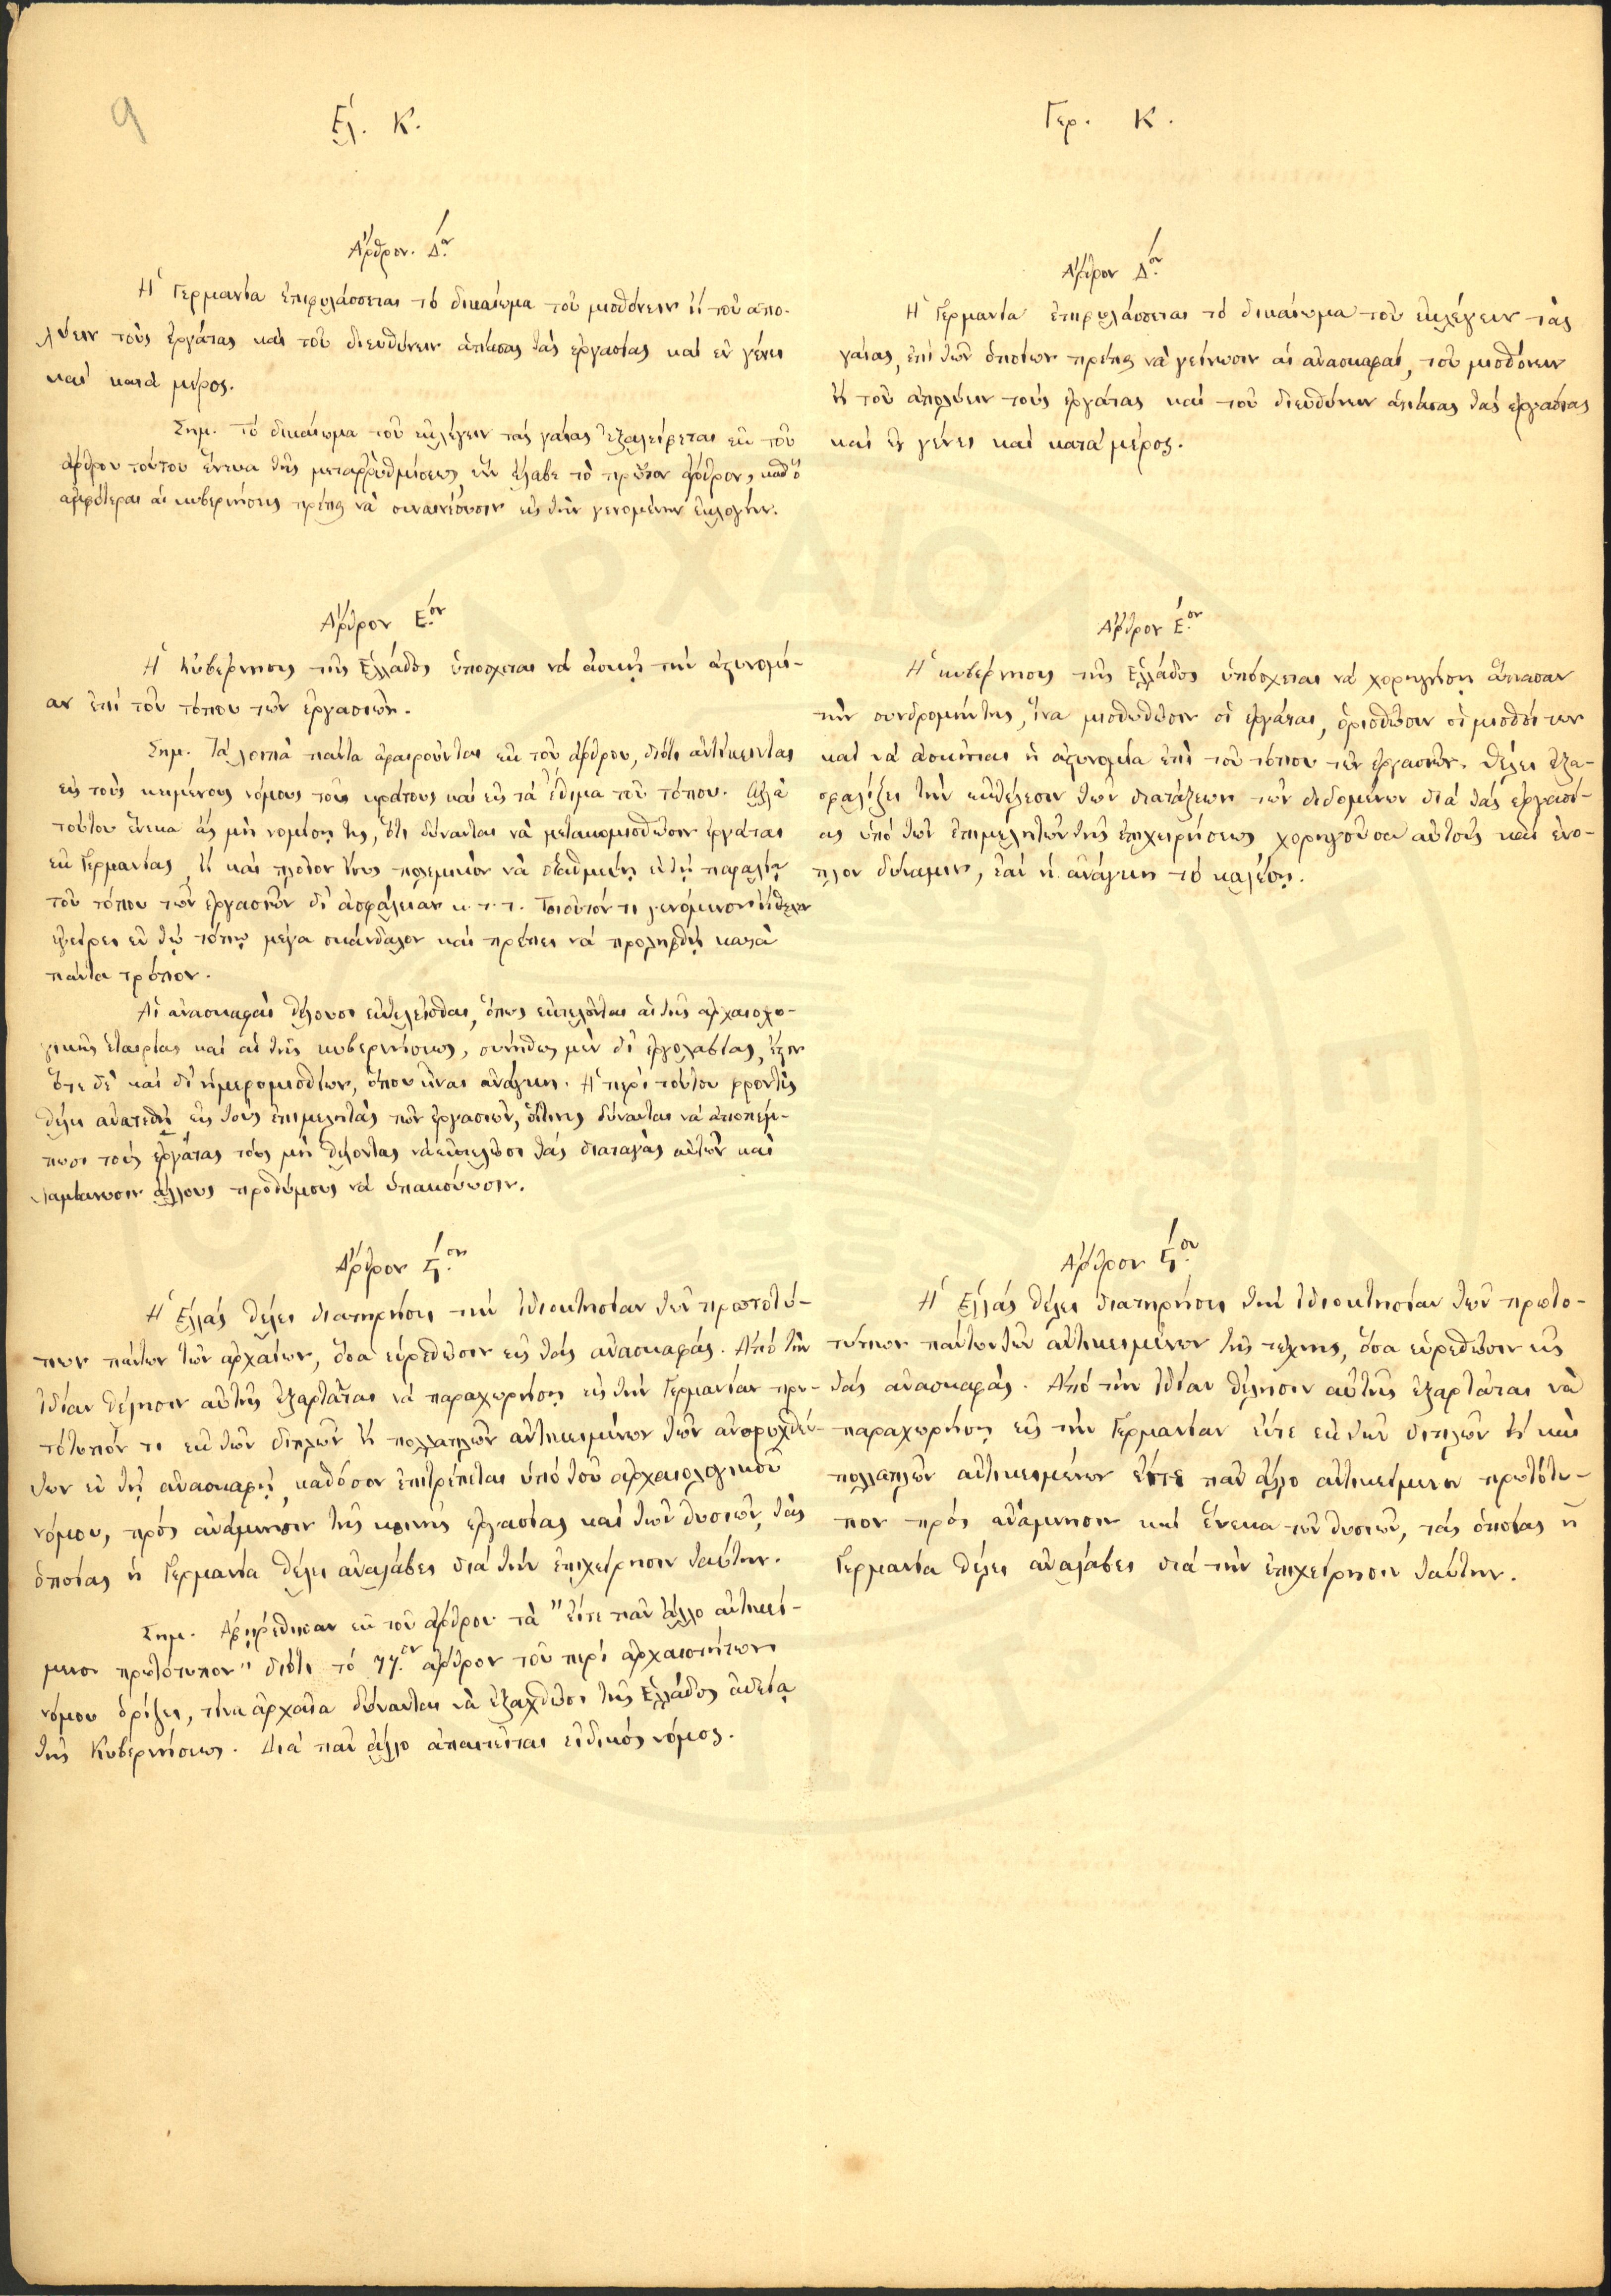 9
Ἑλ. Κ.
Ἄρθρον. Δ.ον
Ἡ Γερμανία ἐπιφυλάσσεται τὸ δικαίωμα τοῦ μισθόνειν ἢ τοῦ ἀπο-
λύειν τοὺς ἐργάτας καὶ τοῦ διευθύνειν ἁπάσας τὰς ἐργασίας καὶ ἐν γένει
καὶ κατὰ μέρος.
Σημ. Τὸ δικαίωμα τοῦ ἐκλέγειν τὰς γαίας ἐξαλείφεται ἐκ τοῦ
ἄρθρου τούτου ἕνεκα τῆς μεταῤῥυθμίσεως, ἣν ἔλαβε τὸ πρῶτον ἄρθρον, καθ' ὃ
ἀμφότεραι αἱ κυβερνήσεις πρέπει νὰ συναινέσωσιν εἰς τὴν γενομένην ἐκλογήν.
Ἄρθρον Ε.ον
Ἡ Κυβέρνησις τῆς Ἑλλάδος ὑπόσχεται νὰ ἀσκῇ τὴν ἀστυνομί-
αν ἐπὶ τοῦ τόπου τῶν ἐργασιῶν.
Σημ. Τὰ λοιπὰ πάντα ἀφαιροῦνται ἐκ τοῦ ἄρθρου, διότι ἀντίκεινται
εἰς τοὺς κειμένους νόμους τοῦ κράτους καὶ εἰς τὰ ἔθιμα τοῦ τόπου. Ἀλλὰ
τούτου ἕνεκα ἂς μὴ νομίσῃ τις, ὅτι δύνανται νὰ μετακομισθῶσιν ἐργάται
ἐκ Γερμανίας, ἢ καὶ πλοῖόν τους πολεμικὸν νὰ σταθμεύῃ ἐν τῇ παραλίᾳ
τοῦ τόπου τῶν ἐργασιῶν δι' ἀσφάλειαν κ.τ.τ. Τοιοῦτόν τι γενόμενον ἤθελεν
ἐγείρει ἐν τῷ τόπῳ μέγα σκάνδαλον καὶ πρέπει νὰ προληφθῇ κατὰ
πάντα τρόπον.
Αἱ ἀνασκαφαὶ θέλουσι ἐκτελεῖσθαι, ὅπως ἐκτελοῦνται αἱ τῆς ἀρχαιολο-
γικῆς ἑταιρίας καὶ αἱ τῆς κυβερνήσεως, συνήθως μὲν δι' ἐργολαβίας, ἔστιν
ὅτε δὲ καὶ δι' ἡμερομισθίων, ὅπου εἶναι ἀνάγκη. Ἡ περὶ τούτου φροντὶς
θέλει ἀνατεθῆ εἰς τοὺς ἐπιμελητὰς τῶν ἐργασιῶν, οἵτινες δύνανται νὰ ἀποπέμ-
πωσι τοὺς ἐργάτας τοὺς μὴ θέλοντας νὰ ἐκτελῶσι τὰς διαταγὰς αὐτῶν καὶ
λαμβάνωσιν ἄλλους προθύμους νὰ ὑπακούωσιν.
Ἄρθρον Ϛ.ον
Ἡ Ἑλλὰς θέλει διατηρήσει τὴν ἰδιοκτησίαν τῶν πρωτοτύ-
πων πάντων τῶν ἀρχαίων, ὅσα εὑρεθῶσιν εἰς τὰς ἀνασκαφάς. Ἀπὸ τὴν
ἰδίαν θέλησιν αὐτῆς ἐξαρτᾶται νὰ παραχωρήσῃ εἰς τὴν Γερμανίαν πρω-
τότυπόν τι ἐκ τῶν διπλῶν ἢ πολλαπλῶν ἀντικειμένων τῶν ἀνορυχθέν-
των ἐν τῇ ἀνασκαφῇ, καθόσον ἐπιτρέπεται ὑπὸ τοῦ ἀρχαιολογικοῦ
νόμου, πρὸς ἀνάμνησιν τῆς κοινῆς ἐργασίας καὶ τῶν θυσιῶν, τὰς
ὁποίας ἡ Γερμανία θέλει ἀναλάβει διὰ τὴν ἐπιχείρησιν ταύτην.
Σημ. Ἀφῃρέθησαν ἐκ τοῦ ἄρθρου τὰ "εἴτε πᾶν ἄλλο ἀντικεί-
μενον πρωτότυπον" διότι τὸ 77.ον ἄρθρον τοῦ περὶ ἀρχαιοτήτων
νόμου ὁρίζει, τίνα ἀρχαῖα δύνανται νὰ ἐξαχθῶσι τῆς Ἑλλάδος ἀδείᾳ
τῆς Κυβερνήσεως. Διὰ πᾶν ἄλλο ἀπαιτεῖται εἰδικὸς νόμος.
Γερ. Κ.
Ἄρθρον Δ.ον
Ἡ Γερμανία ἐπιφυλάσσεται τὸ δικαίωμα τοῦ ἐκλέγειν τὰς
γαίας, ἐπὶ τῶν ὁποίων πρέπει νὰ γείνωσιν αἱ ἀνασκαφαί, τοῦ μισθόνειν
ἢ τοῦ ἀπολύειν τοὺς ἐργάτας καὶ τοῦ διευθύνειν ἁπάσας τὰς ἐργασίας
καὶ ἐν γένει καὶ κατὰ μέρος.
Ἄρθρον Ε.ον
Ἡ κυβέρνησις τῆς Ἑλλάδος ὑπόσχεται νὰ χορηγήσῃ ἅπασαν
τὴν συνδρομήν της, ἵνα μισθωθῶσιν οἱ ἐργάται, ὁρισθῶσιν οἱ μισθοί των
καὶ νὰ ἀσκῆται ἡ ἀστυνομία ἐπὶ τοῦ τόπου τῶν ἐργασιῶν. Θέλει ἐξα-
σφαλίζει τὴν ἐκτέλεσιν τῶν διατάξεων τῶν διδομένων διὰ τὰς ἐργασί-
ας ὑπὸ τῶν ἐπιμελητῶν τῆς ἐπιχειρήσεως, χορηγοῦσα αὐτοῖς καὶ ἔνο-
πλον δύναμιν, ἐὰν ἡ ἀνάγκη τὸ καλέσῃ.
Ἄρθρον Ϛ.ον
Ἡ Ἑλλὰς θέλει διατηρήσει τὴν ἰδιοκτησίαν τῶν πρωτο-
τύπων πάντων τῶν ἀντικειμένων τῆς τέχνης, ὅσα εὑρεθῶσιν εἰς
τὰς ἀνασκαφάς. Ἀπὸ τὴν ἰδίαν θέλησιν αὐτῆς ἐξαρτᾶται νὰ
παραχωρήσῃ εἰς τὴν Γερμανίαν εἴτε ἐκ τῶν διπλῶν ἢ καὶ
πολλαπλῶν ἀντικειμένων εἴτε πᾶν ἄλλο ἀντικείμενον πρωτότυ-
πον πρὸς ἀνάμνησιν καὶ ἕνεκα τῶν θυσιῶν, τὰς ὁποίας ἡ
Γερμανία θέλει ἀναλάβει διὰ τὴν ἐπιχείρησιν ταύτην.